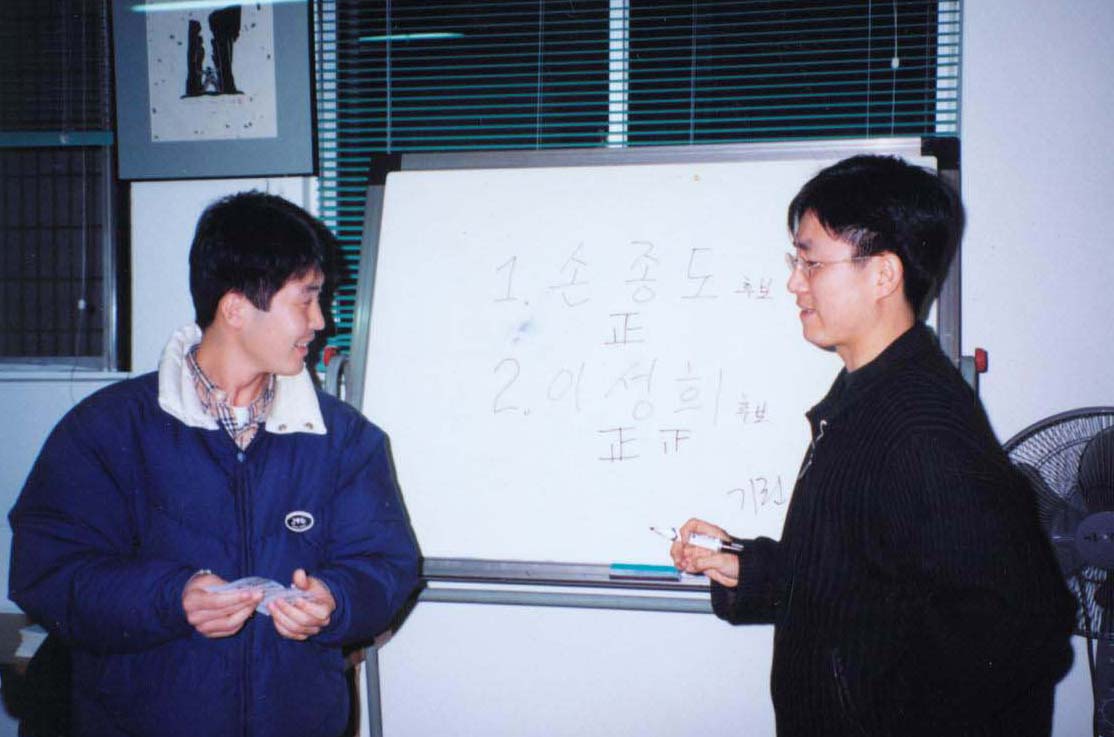 1. 손종도 후보
正
2. 이성희 후보
正 正
기권